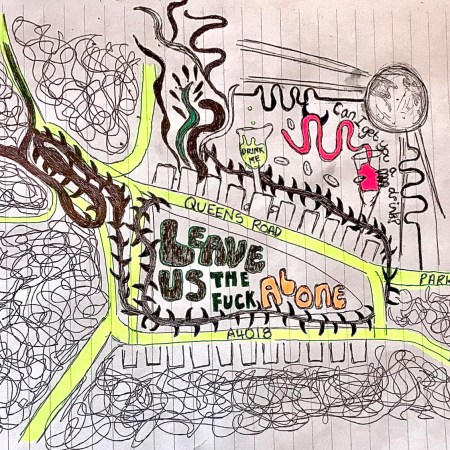 Can I get you a drink?
DRINK
ME
QUEENS ROAD
LEAVE
US THE
FUCK ALONE
PARK
A4018